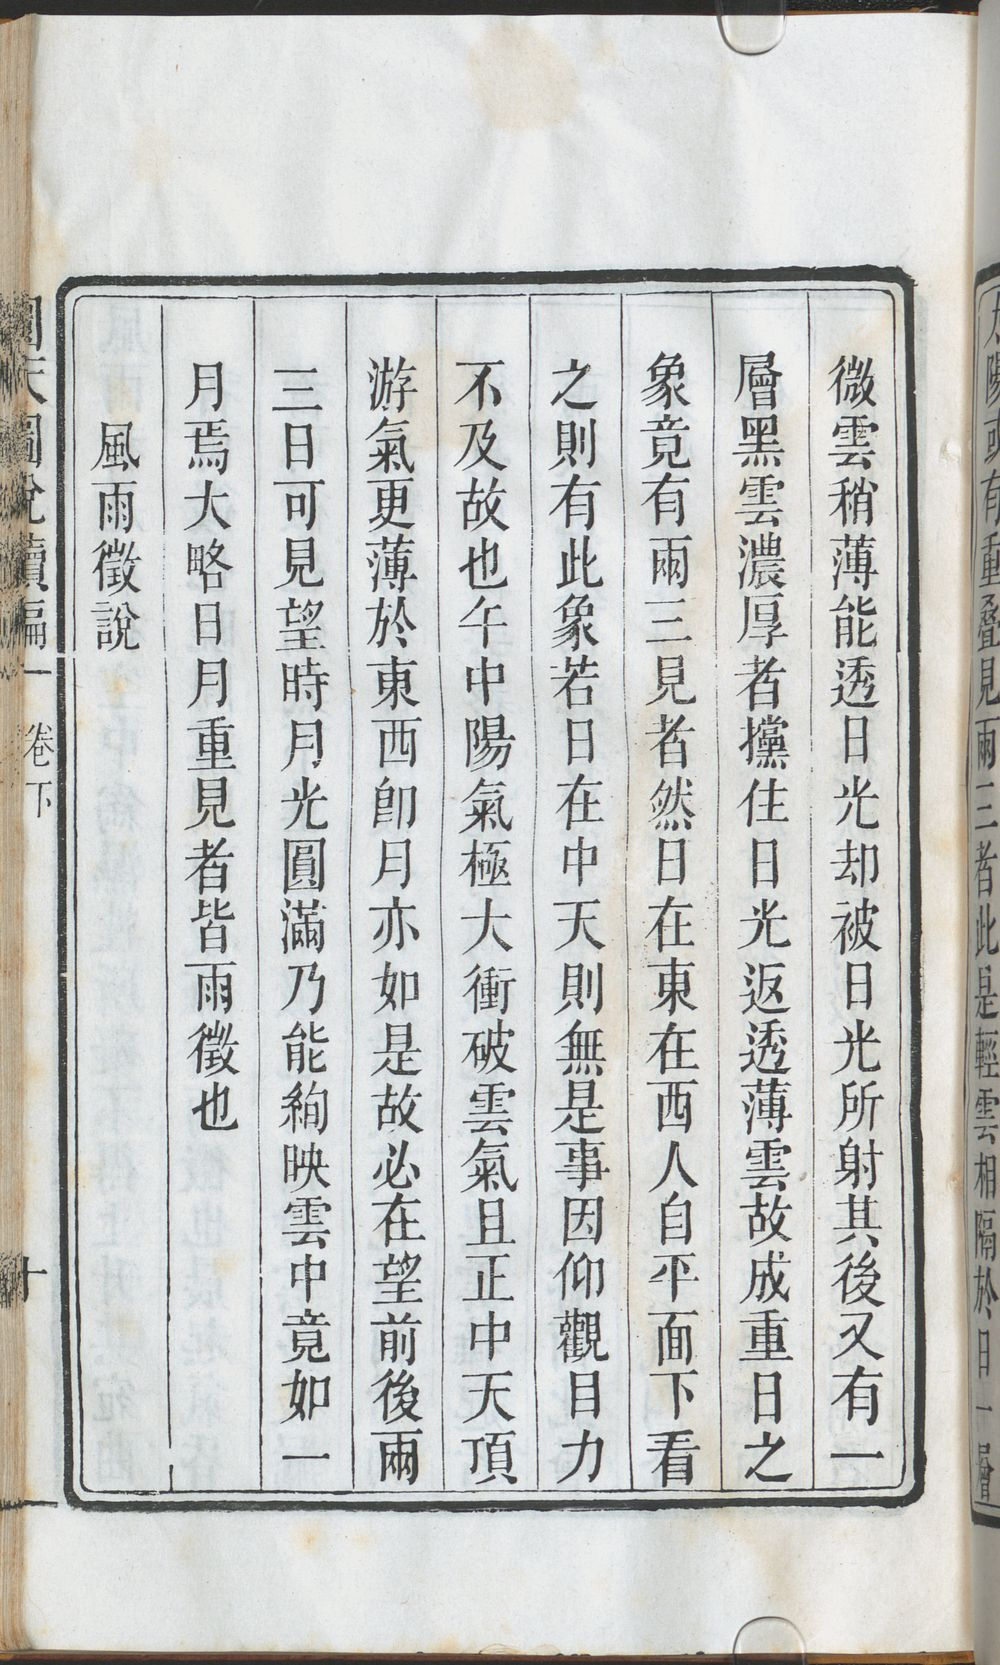 太陽或有重疊見兩三者此是輕雲相隔於日一層
微雲稍薄能透日光却被日光所射其後又有一
層黑雲濃厚者攩住日光返透薄雲故成重日之
象竟有兩三見者然日在東在西人自平面下看
之則有此象若日在中天則無是事因仰觀目力
不及故也午中陽氣極大衝破雲氣且正中天頂
游氣更薄於東西卽月亦如是故必在望前後兩
三日可見望時月光圓滿乃能絢映雲中竟如一
月焉大略日月重見者皆雨徵也
風雨徵說
圜天圖說續編 卷下 十